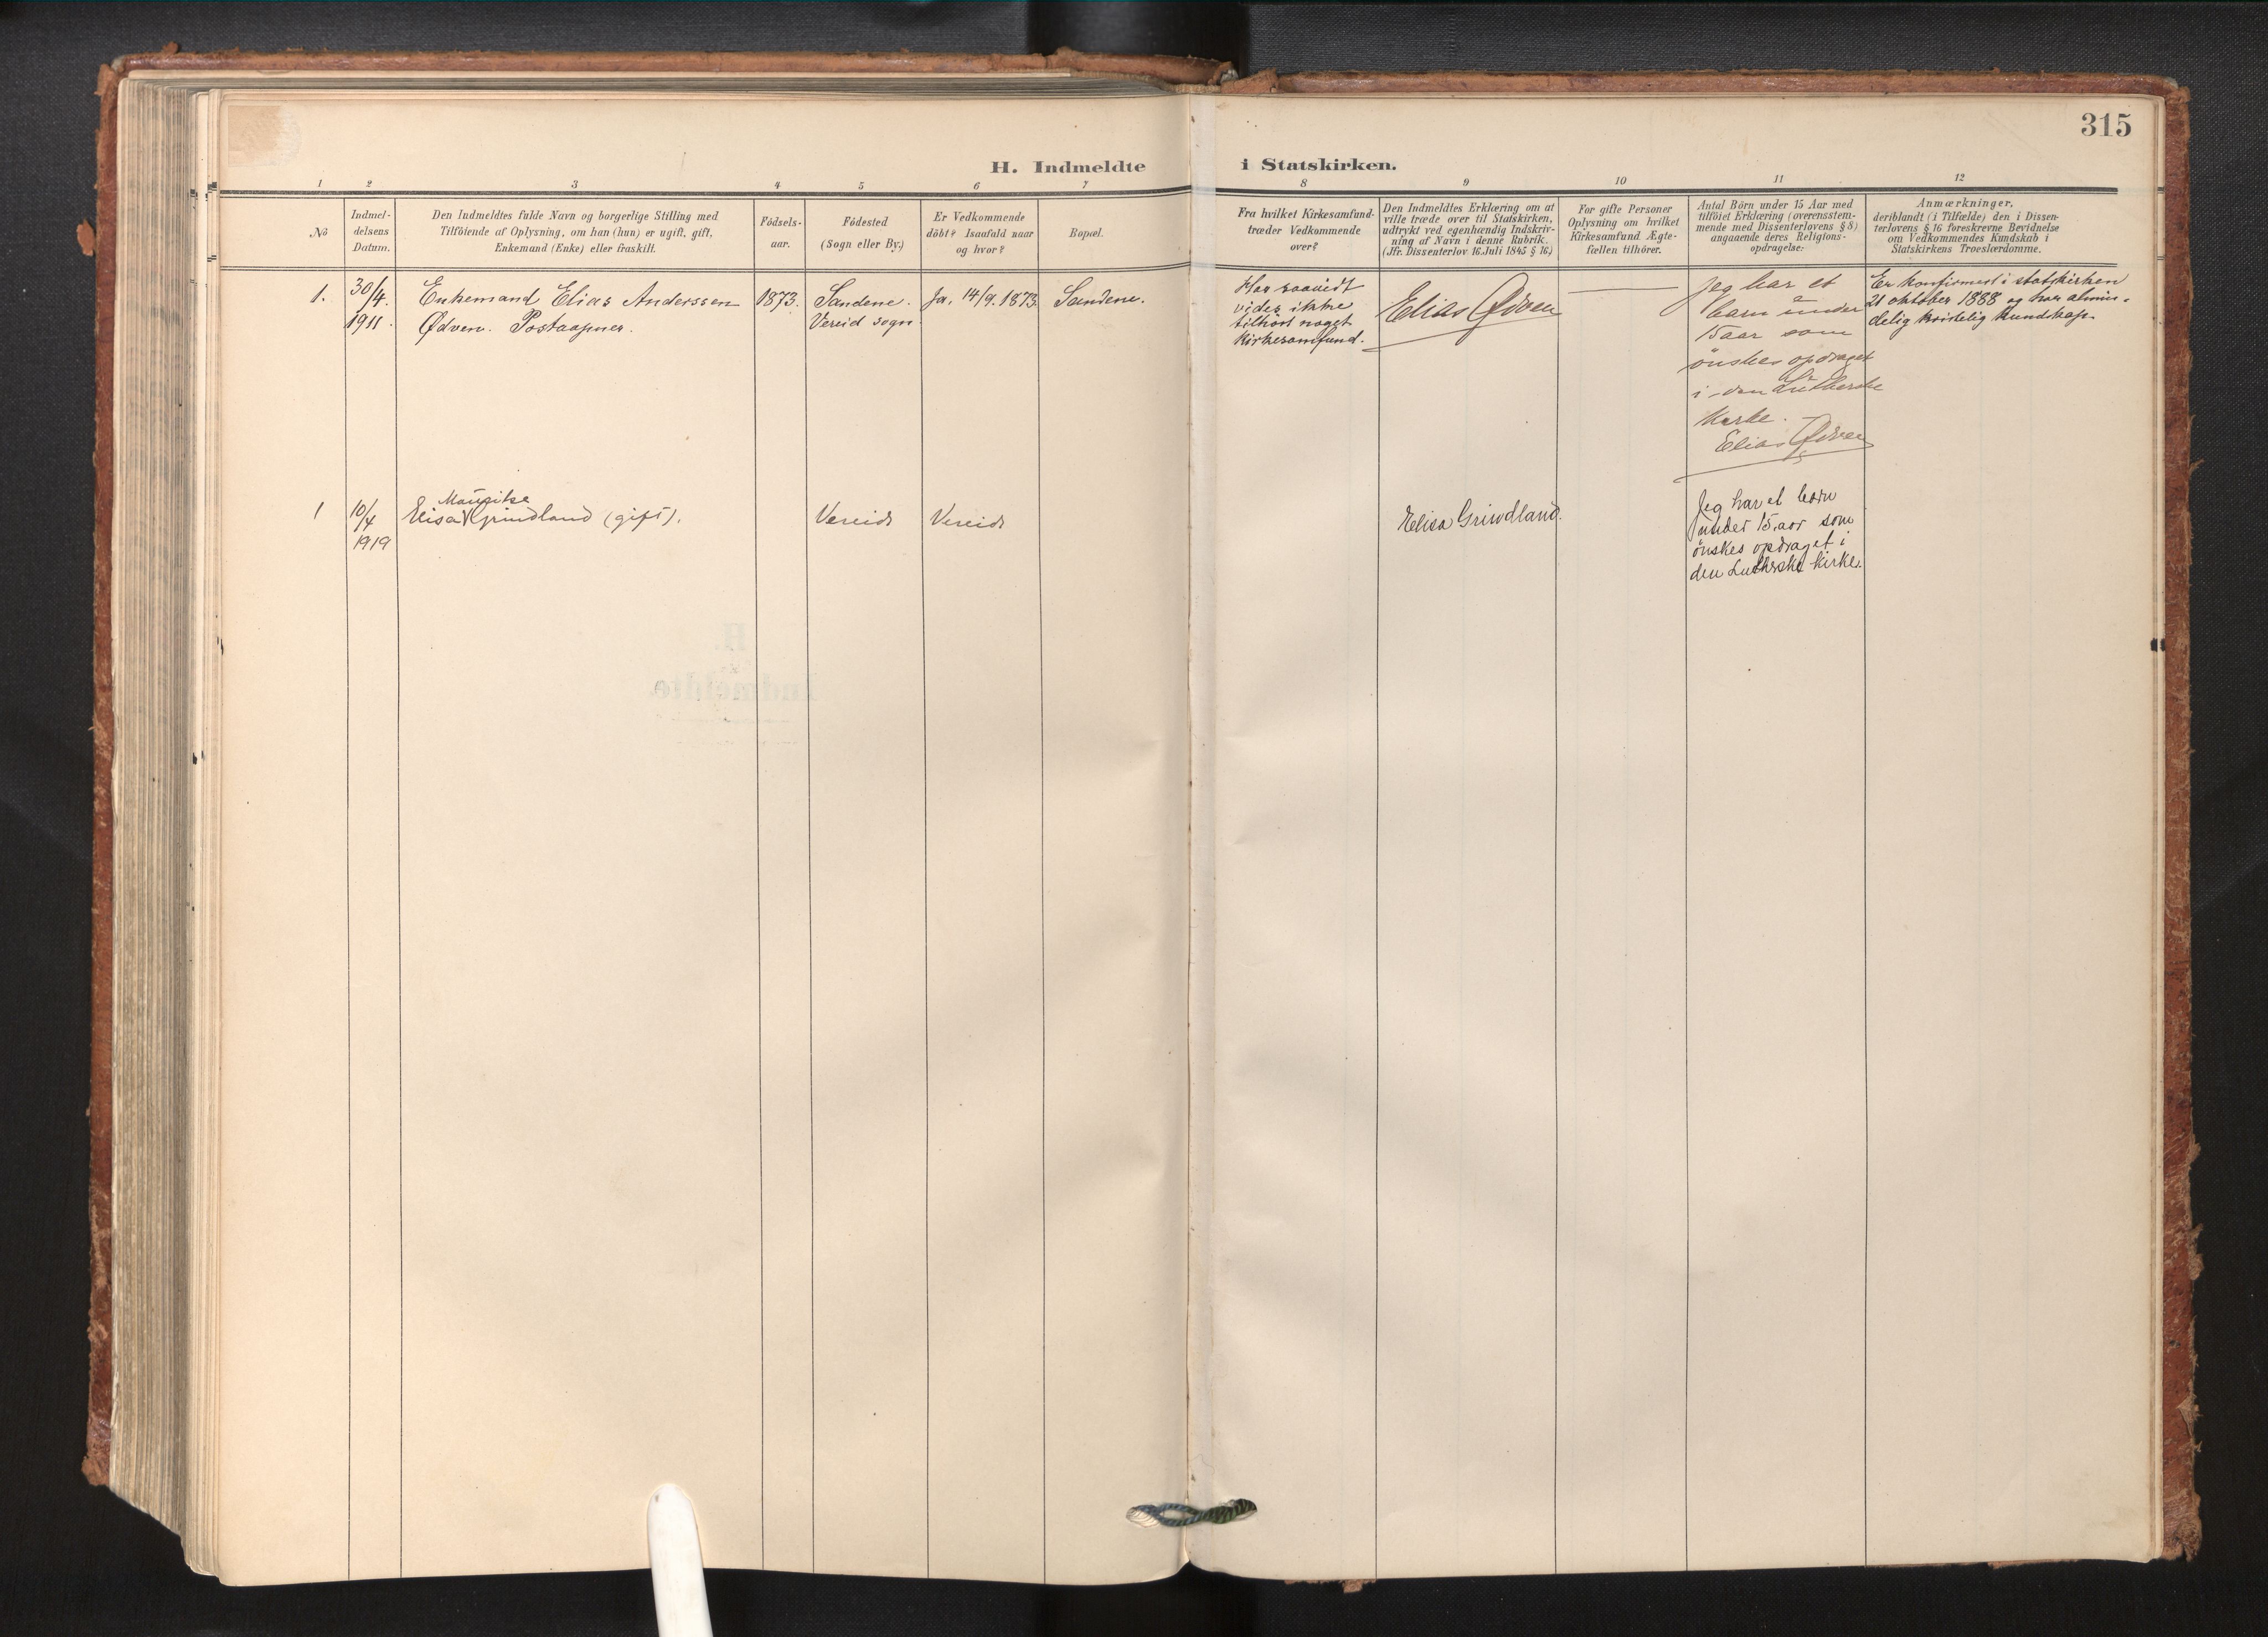 315
H. Indmeldte i Statskirken.
1 2 3 4 5 6 7 8 9 10 11 12
No
Indmel-
delsens
Datum.
Den Indmeldtes fulde Navn og borgerlige Stilling med
Tilföiende af Oplysning, om han (hun) er ugift, gift,
Enkemand (Enke) eller fraskilt.
Födsels-
aar.
Födested
(Sogn eller By.)
Er Vedkommende
döbt? Isaafald naar
og hvor?
Bopæl.
Fra hvilket Kirkesamfund
træder Vedkommende
over?
Den Indmeldtes Erklæring om at
ville træde over til Statskirken,
udtrykt ved egenhændig Indskriv-
ning af Navn i denne Rubrik.
(Jfr. Dissenterlov 16. Juli 1845 § 16.)
For gifte Personer
Oplysning om hvilket
Kirkesamfund Ægte-
fællen tilhörer.
Antal Börn under 15 Aar med
tilföiet Erklæring (overensstem-
mende med Dissenterlovens § 8)
angaaende deres Religions-
opdragelse.
Anmærkninger.
deriblandt (i Tilfælde) den i Dissen-
terlovens § 16 foreskrevne Bevidnelse
om Vedkommendes Kundskab i
Statskirkens Troeslærdomme.
1.
30/4.
1911.
Enkemand Elias Anderssen
Ødven. Postaapner.
1873.
Sandene.
Vereid sogn.
Ja. 14/9. 1873
Sandene.
Har saavidt
vides ikke
tilhört noget
kirkesamfund.
Elias Ødven
Jeg har et
barn under
15 aar som
önskes opdraget
i den Lutherske
Kirke.
Elias Ødven
Er konfirmert i statskirken
21 oktober 1888 og har almin-
delig kristelig kundskap.
1
10/4
1919
Mauritse
Elisa V Grindland (gift).
Vereid
Vereid
Elisa Grindland.
Jeg har et barn
under 15 aar som
önskes opdraget i
den Lutherske kirke.